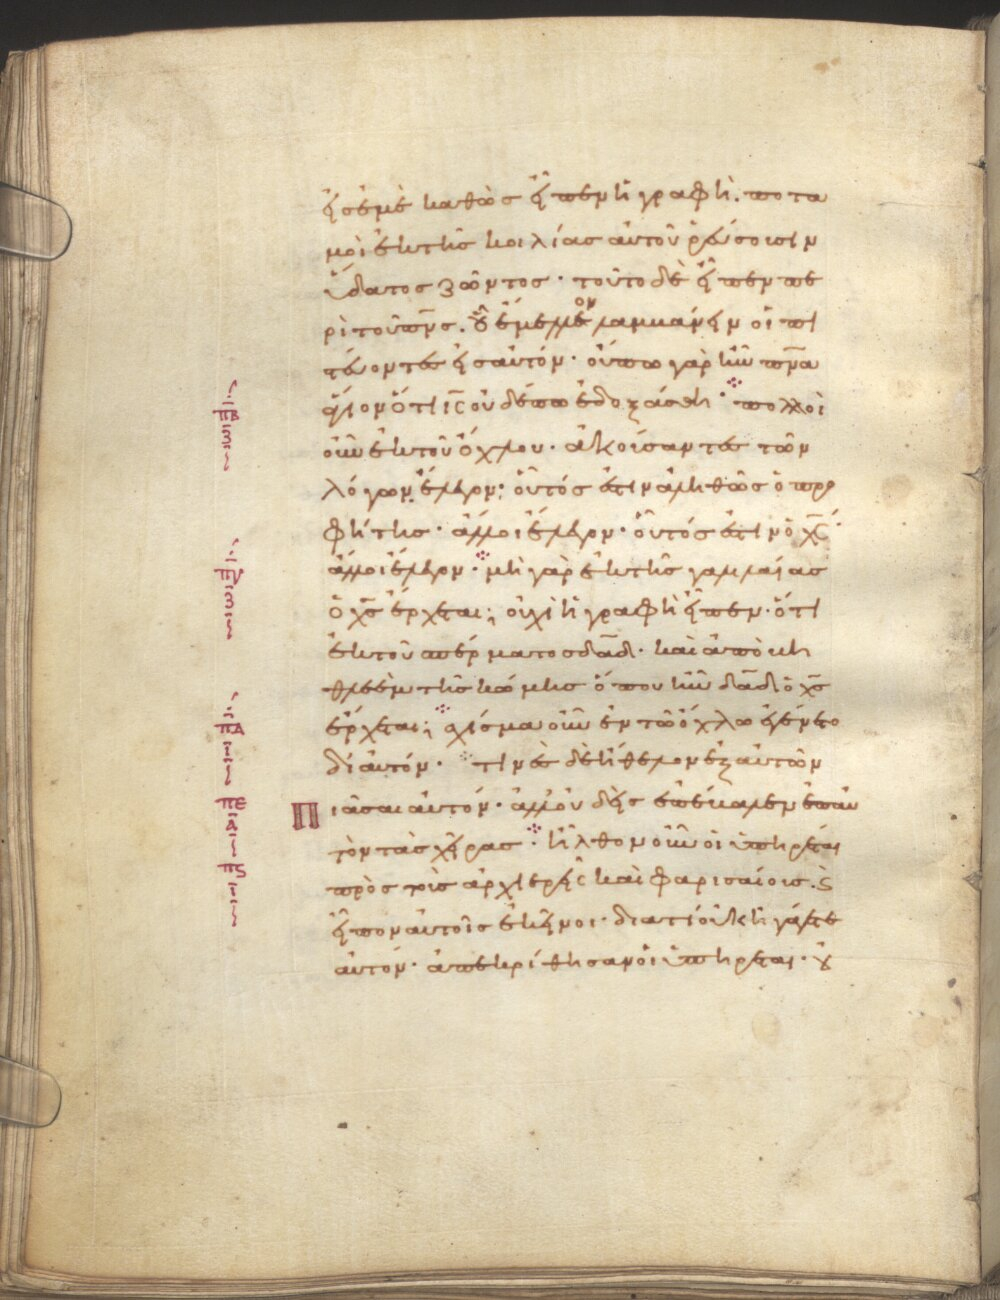 εἰς ἐμὲ καθὼς εἶπεν ἡ γραφή. ποτα
μοὶ ἐκ τῆς κοιλίας αὐτοῦ ῥεύσουσιν
ὕδατος ζῶντος · τοῦτο δὲ εἶπεν πε
ρὶ τοῦ πν̅ς. οὗ ἔμελλον λαμβάνειν οἱ πι
στεύοντες εἰς αὐτόν · οὔπω γὰρ ἦν πν̅α
ἅγιον ὅτι ις̅ οὐδέπω ἐδοξάσθη · πολλοὶ
οὖν ἐκ τοῦ ὄχλου · ἀκούσαντες τῶν
λόγων ἔλεγον · οὗτός ἐστιν ἀληθῶς ὁ προ
φήτης · ἄλλοι ἔλεγον · οὗτός ἐστιν ὁ χς̅ ·
ἄλλοι ἔλεγον · μὴ γὰρ ἐκ τῆς γαλιλαίας
ὁ χς̅ ἔρχεται; οὐχὶ ἡ γραφὴ εἶπεν · ὅτι
ἐκ τοῦ σπέρματος δα̅δ · καὶ ἀπὸ βη
θλεὲμ τῆς κώμης ὅπου ἦν δα̅δ ὁ χς̅
ἔρχεται; σχίσμα οὖν ἐν τῶ ὄχλω ἐγένετο
δι αὐτόν · τινὲς δὲ ἤθελον ἐξ αὐτῶν
πιάσαι αὐτόν · ἀλλ οὐδεὶς ἐπέβαλεν ἐπ αὐ
τὸν τὰς χεῖρας · ἦλθον οὖν οἱ ὑπηρέται
πρὸς τοὺς ἀρχιερεῖς καὶ φαρισαίους. ϛ
εἶπον αὐτοῖς ἐκεῖνοι · διατί οὐκ ἠγάγετε
αὐτόν · ἀπεκρίθησαν οἱ ὑπηρέται · οὐ
πβ
ζ
πγ
ζ
πδ
ι
πε
δ
πϛ
ι